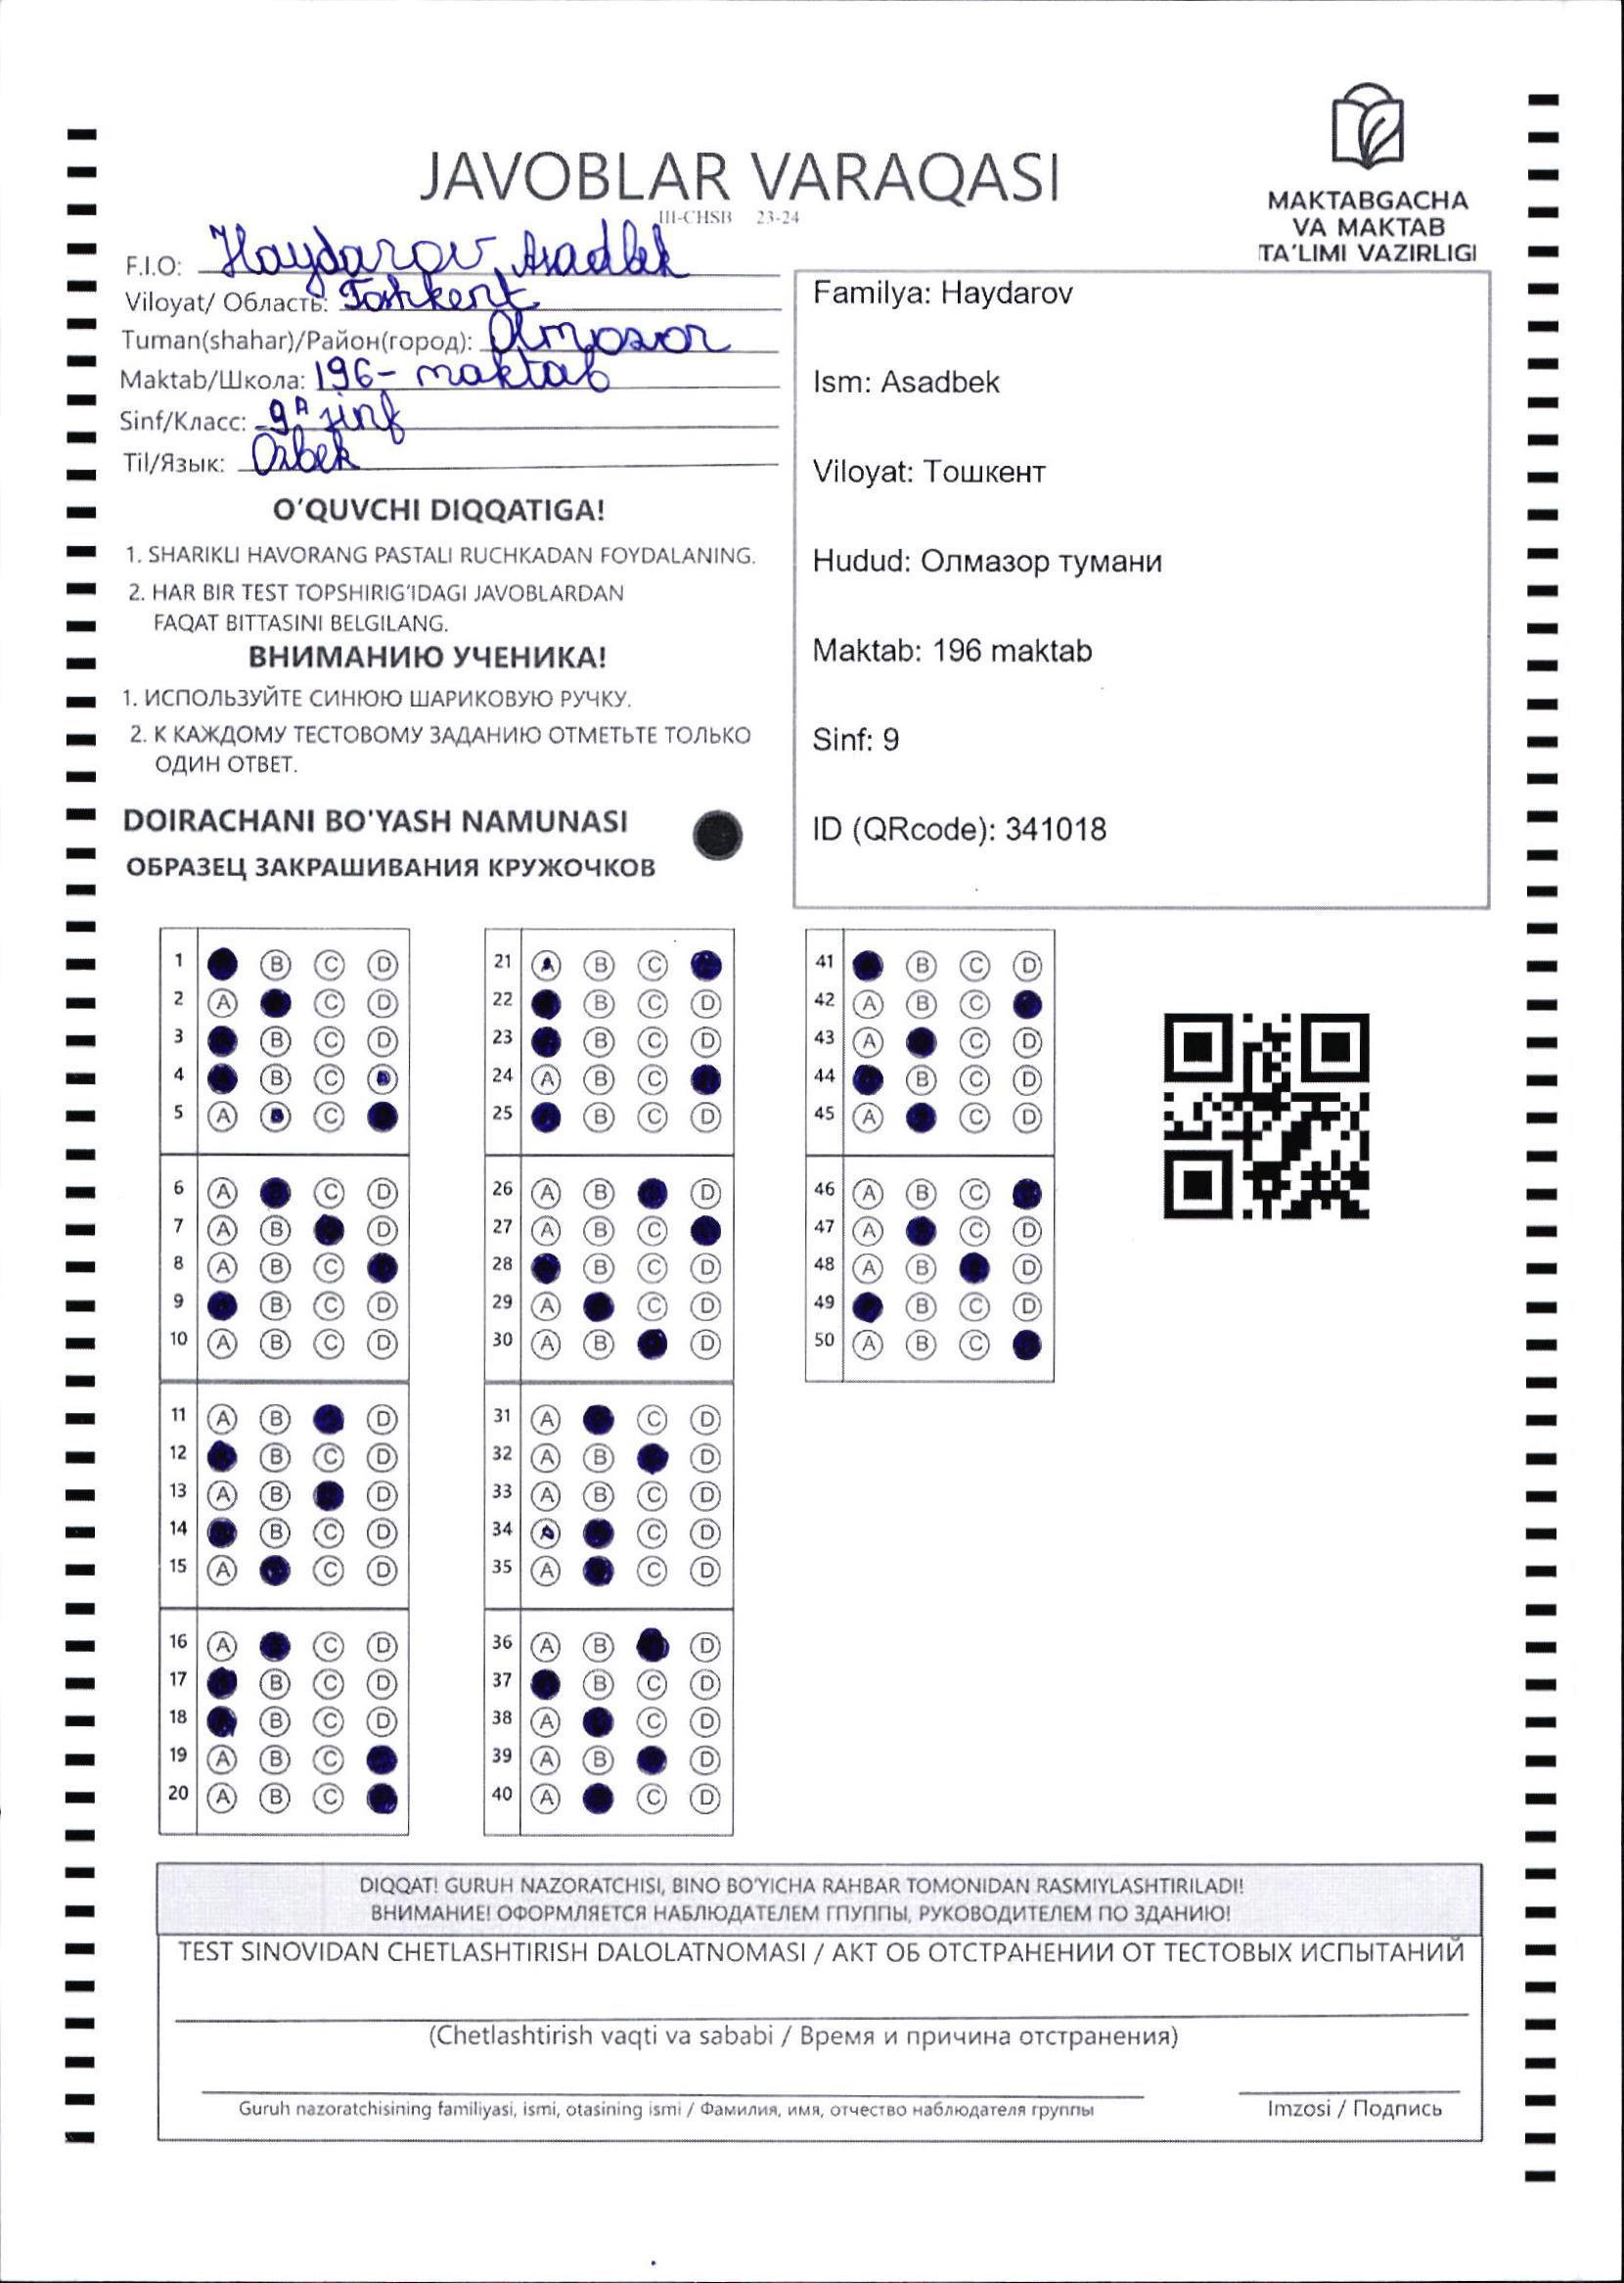 JAVOBLAR VARAQASI
III-CHSB 23-24
MAKTABGACHA
VA MAKTAB
TA'LIMI VAZIRLIGI
F.I.O: Haydarov Asadbek
Viloyat/ Область: Toshkent
Tuman(shahar)/Район(город): Olmosor
Maktab/Школа: 196- maktab
Sinf/Класс: 9A sinf
Til/Язык: Ozbek
O'QUVCHI DIQQATIGA!
1. SHARIKLI HAVORANG PASTALI RUCHKADAN FOYDALANING.
2. HAR BIR TEST TOPSHIRIG'IDAGI JAVOBLARDAN
FAQAT BITTASINI BELGILANG.
ВНИМАНИЮ УЧЕНИКА!
1. ИСПОЛЬЗУЙТЕ СИНЮЮ ШАРИКОВУЮ РУЧКУ.
2. К КАЖДОМУ ТЕСТОВОМУ ЗАДАНИЮ ОТМЕТЬТЕ ТОЛЬКО
ОДИН ОТВЕТ.
DOIRACHANI BO'YASH NAMUNASI
ОБРАЗЕЦ ЗАКРАШИВАНИЯ КРУЖОЧКОВ
Familya: Haydarov
Ism: Asadbek
Viloyat: Тошкент
Hudud: Олмазор тумани
Maktab: 196 maktab
Sinf: 9
ID (QRcode): 341018
1 B C D
2 A C D
3 B C D
4 B C D
5 A B C
6 A C D
7 A B D
8 A B C
9 B C D
10 A B C D
11 A B D
12 B C D
13 A B D
14 B C D
15 A C D
16 A C D
17 B C D
18 B C D
19 A B C
20 A B C
21 A B C
22 B C D
23 B C D
24 A B C
25 B C D
26 A B D
27 A B C
28 B C D
29 A C D
30 A B D
31 A C D
32 A B D
33 A B C D
34 A C D
35 A C D
36 A B D
37 B C D
38 A C D
39 A B D
40 A C D
41 B C D
42 A B C
43 A C D
44 B C D
45 A C D
46 A B C
47 A C D
48 A B D
49 B C D
50 A B C
DIQQAT! GURUH NAZORATCHISI, BINO BO'YICHA RAHBAR TOMONIDAN RASMIYLASHTIRILADI!
ВНИМАНИЕ! ОФОРМЛЯЕТСЯ НАБЛЮДАТЕЛЕМ ГПУППЫ, РУКОВОДИТЕЛЕМ ПО ЗДАНИЮ!
TEST SINOVIDAN CHETLASHTIRISH DALOLATNOMASI / АКТ ОБ ОТСТРАНЕНИИ ОТ ТЕСТОВЫХ ИСПЫТАНИЙ
(Chetlashtirish vaqti va sababi / Время и причина отстранения)
Guruh nazoratchisining familiyasi, ismi, otasining ismi / Фамилия, имя, отчество наблюдателя группы
Imzosi / Подпись